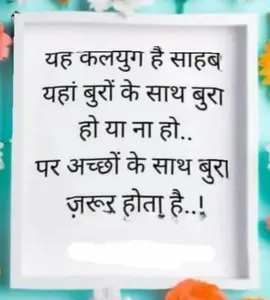 यह कलयुग है साहब
यहां बुरों के साथ बुरा
हो या ना हो..
पर अच्छों के साथ बुरा
ज़रूर होता है..!